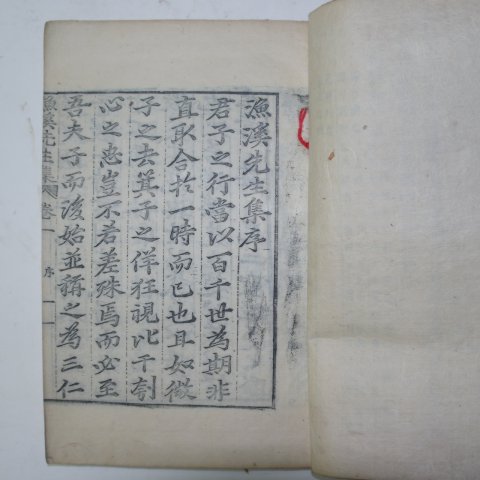 漁溪先生集序
君子之行當以百千世爲期非
直取合於一時而已也且如微
子之去箕子之佯狂視比干刳
心之忠豈不若差殊焉而必至
吾夫子而後始並稱之爲三仁
漁溪先生集 卷一 序 一